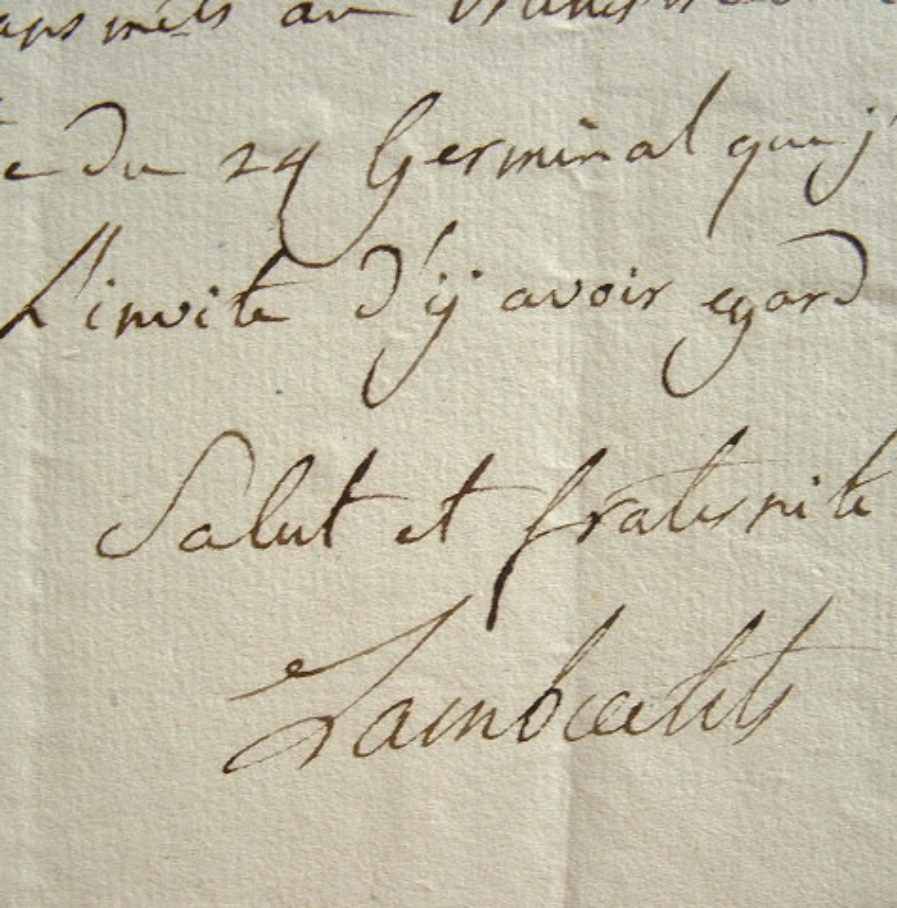 au
du 24 Germinal que j'
L'invite d'y avoir egard
Salut et fraternité
Lambrechts